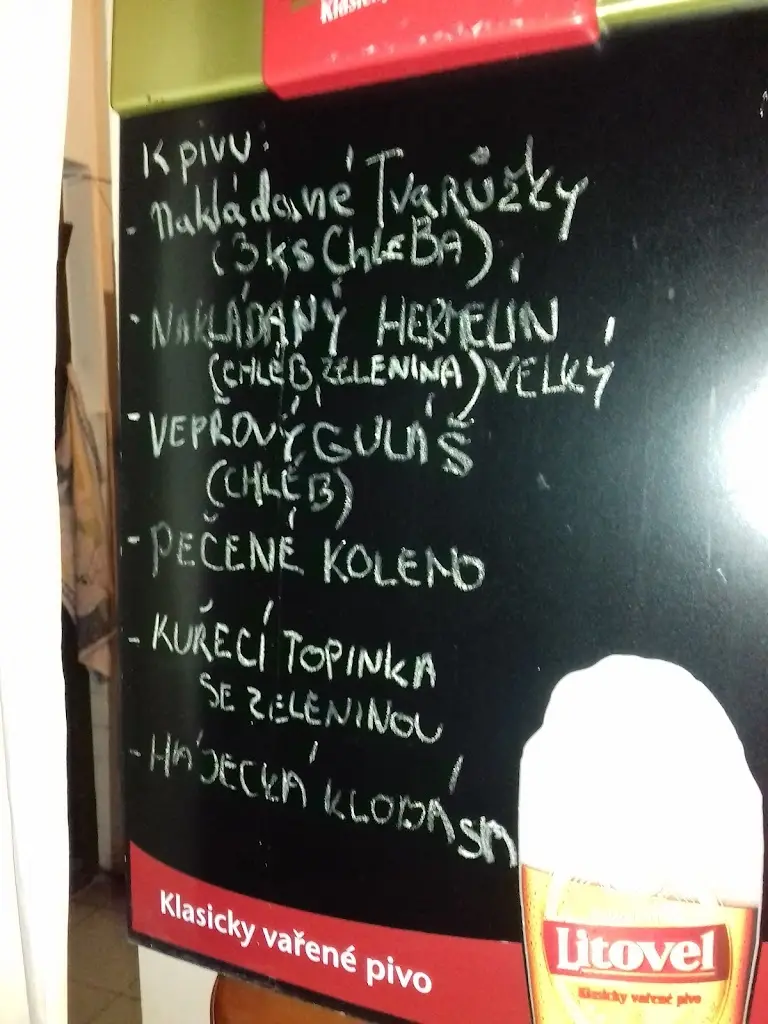 Klasicky
K pivu:
- Nakládané Tvarůžky
(3 ks CHLEBA)
- NAKLÁDANÝ HERMELÍN
(CHLÉB, ZELENINA) VELKÝ
- VEPŘOVÝ GULÁŠ
(CHLÉB)
- PEČENÉ KOLENO
- KUŘECÍ TOPINKA
SE ZELENINOU
- HÁJECKÁ KLOBÁSA
Klasicky vařené pivo
Litovel
Klasicky vařené pivo